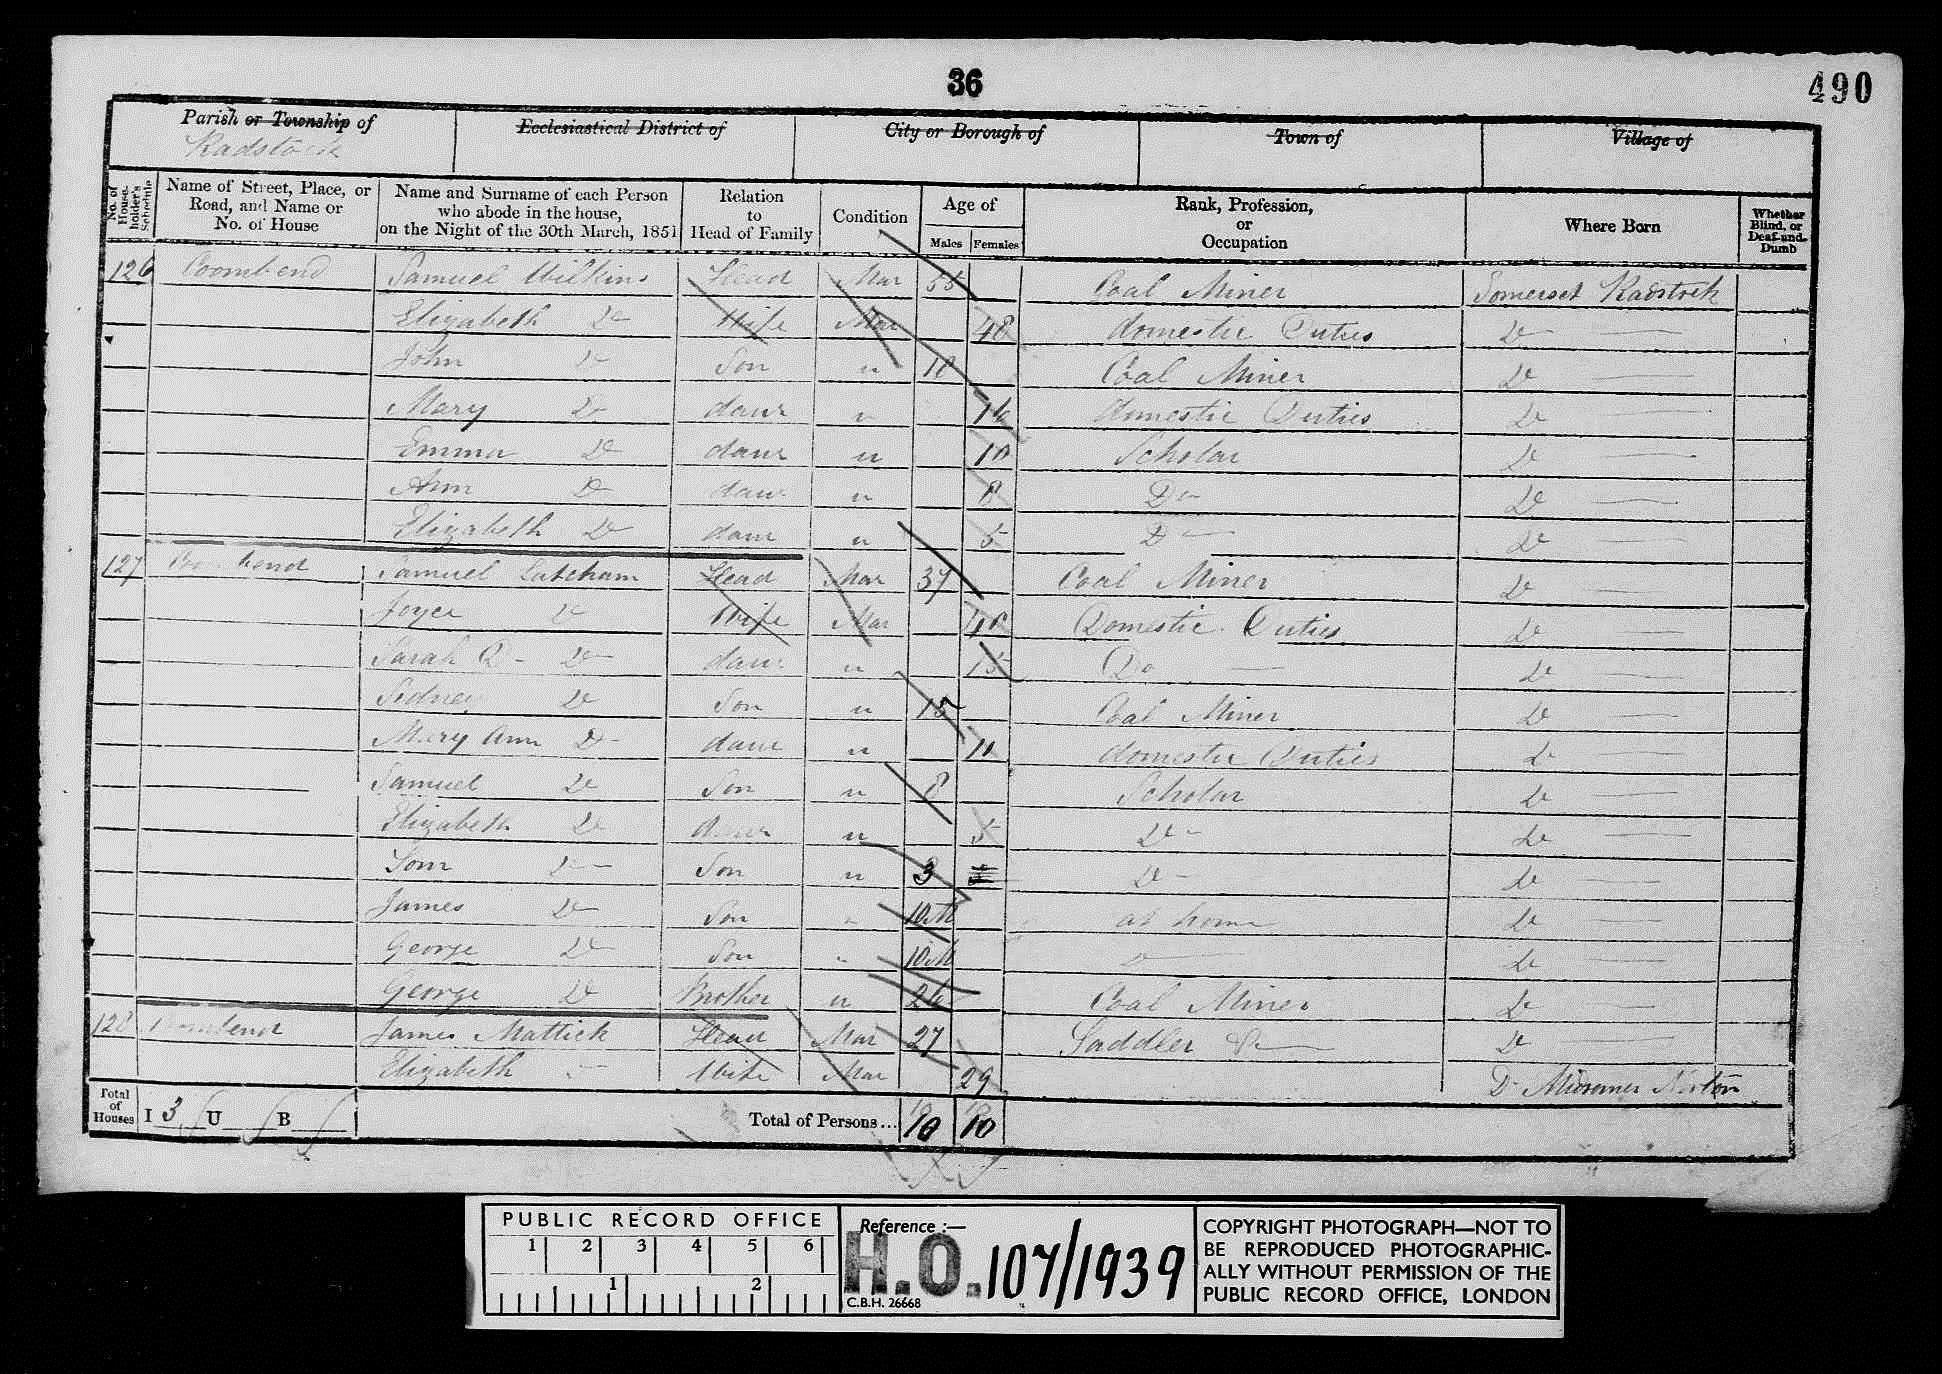 36
490
Parish or Township of
Radstock
Ecclesiastical District of
City or Borough of
Town of
Village of
No. of House-holder's Schedule
Name of Street, Place, or Road, and Name or No. of House
Name and Surname of each Person who abode in the house, on the Night of the 30th March, 1851
Relation to Head of Family
Condition
Age of
Males
Females
Rank, Profession, or Occupation
Where Born
Whether Blind, or Deaf-and-Dumb
126 Coombend Samuel Wilkins Head Mar 55 Coal Miner Somerset Radstock
Elizabeth Do Wife Mar 48 domestic Duties Do
John Do Son u Coal Miner Do
Mary Do daur u 16 domestic Duties Do
Emma Do daur u 10 Scholar Do
Ann Do daur u 8 Do Do
Elizabeth Do daur u 5 Do Do
127 Coombend Samuel Latcham Head Mar 37 Coal Miner Do
Joyce Do Wife Mar Domestic Duties Do
Sarah Do daur u 15 Do Do
Sidney Do Son u Coal Miner Do
Mary Ann Do daur u domestic Duties Do
Samuel Do Son u 8 Scholar Do
Elizabeth Do daur u 5 Do Do
Tom Do Son u 3 Do Do
James Do Son 10 M at home Do
George Do Son 10 M Do
George Do Brother u 26 Coal Miner Do
128 Coombend James Mattick Head Mar 27 Saddler Do
Elizabeth Wife Mar 29 Do Midsomer Norton
Total of Houses I 3 U B
Total of Persons... 10 10
PUBLIC RECORD OFFICE
1 2 3 4 5 6
1 2
Reference :—
H.O. 107/1939
C.B.H. 26668
COPYRIGHT PHOTOGRAPH—NOT TO
BE REPRODUCED PHOTOGRAPHIC-
ALLY WITHOUT PERMISSION OF THE
PUBLIC RECORD OFFICE, LONDON